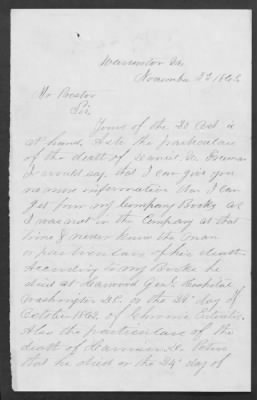 Warrenton Va
November 3d 1862
Mr Bestor
Sir
Yours of the 30 Oct is
at hand. As to the particulars
of the death of Daniel W. Freeman
I would say that I can give you
no more information than I can
get from my Company Books as
I was not in the Company at that
time & never knew the man
or particulars of his death.
According to my Books he
died at Harwood Genl Hospital
Washington D.C. on the 24th day of
October 1862 of Chronic Enteritis
Also the particulars of the
death of Harmon
that he died on the 24th day of